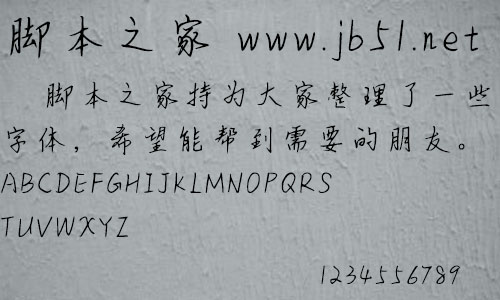 脚本之家 www.jb51.net
脚本之家持为大家整理了一些
字体，希望能帮到需要的朋友。
ABCDEFGHIJKLMNOPQRS
TUVWXYZ
1234556789